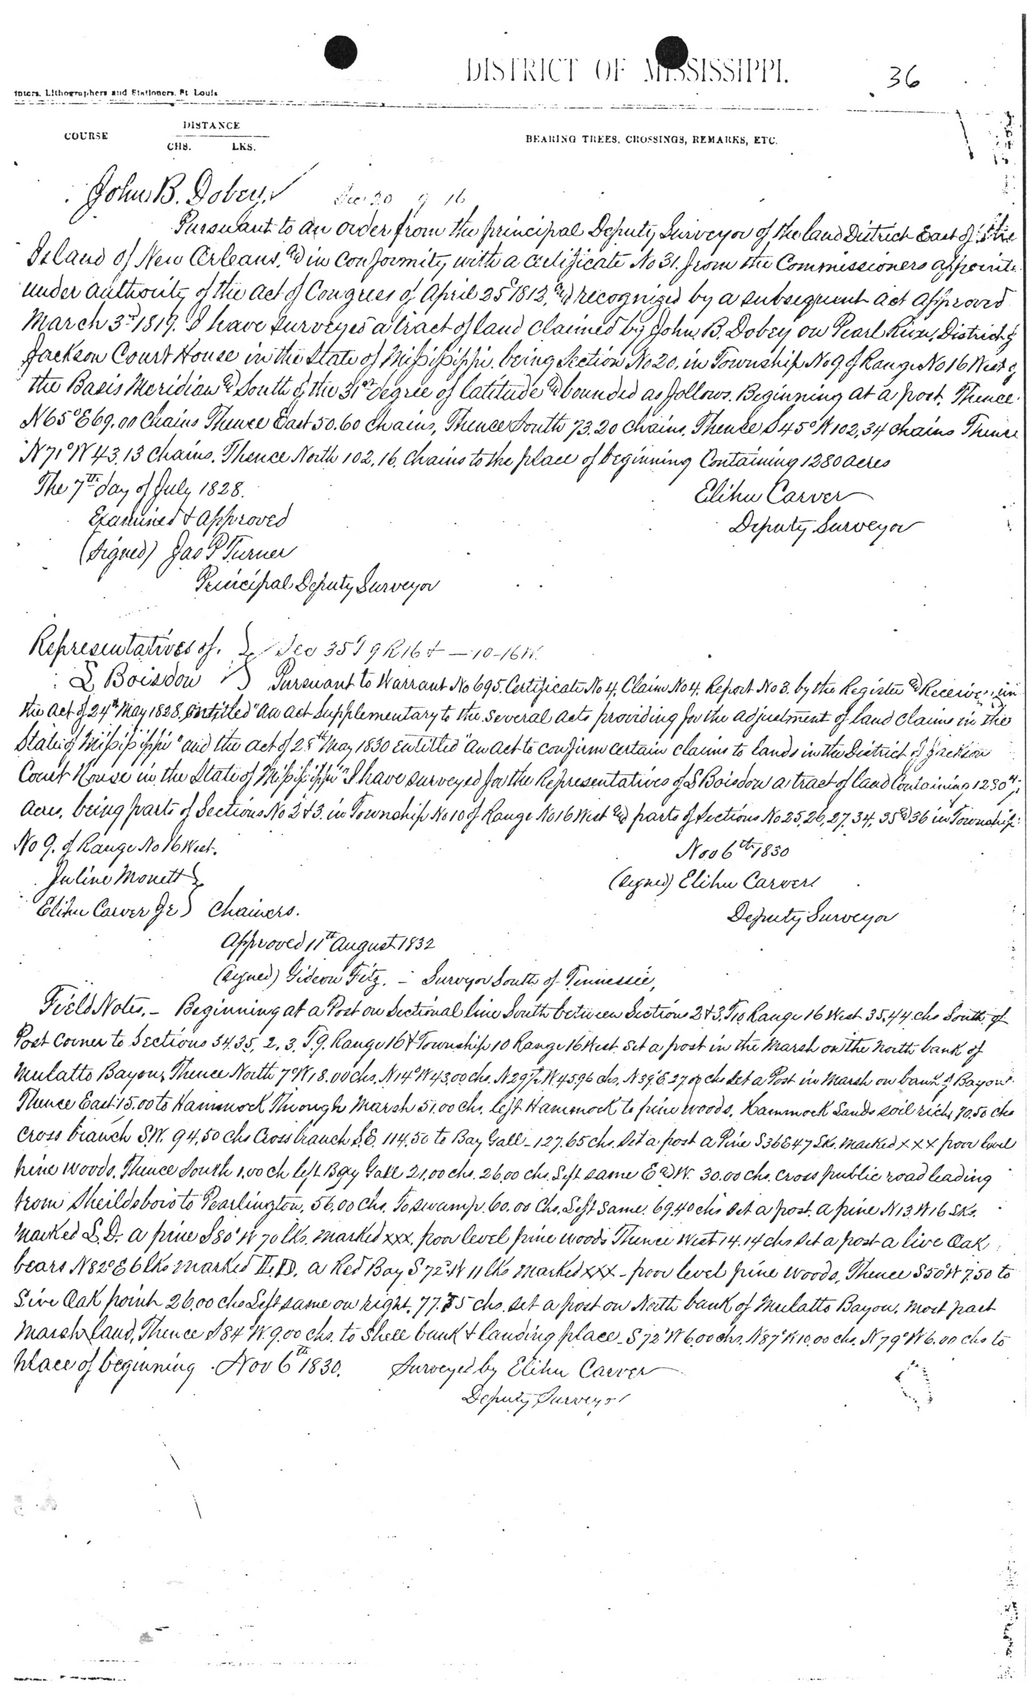 DISTRICT OF MISSISSIPPI.
36
Lithographers and Stationers, St Louis
COURSE
DISTANCE
CHS. LKS.
BEARING TREES, CROSSINGS, REMARKS, ETC.
John B. Dobey. Sec 20 9 16
Pursuant to an order from the principal Deputy Surveyor of the land District East of the
Island of New Orleans, & in conformity with a certificate No 31. from the Commissioners appointe
under authority of the act of Congress of April 25th 1812, & recognized by a subsequent act approved
March 3rd 1819. I have surveyed a tract of land claimed by John B. Dobey on Pearl River, District of
Jackson Court House in the State of Mississippi, being Section No 20, in Township No 9 of Range No 16 West of
the Basis Meridian & South of the 31st degree of latitude & bounded as follows. Beginning at a post, Thence
N 65° E 69.00 Chains Thence East 50.60 chains, Thence South 73.20 chains, Thence S 45° W 102,34 chains Thence
N 71° W 43.13 chains. Thence North 102.16, Chains to the place of beginning Containing 1280 acres
The 7th day of July 1828. Elihu Carver
Examined & approved Deputy Surveyor
(Signed) Jas P Turner
Principal Deputy Surveyor
Representatives of. } Sec 35 T 9 R 16 & — 10-16W.
L Boisdou } Pursuant to Warrant No 695. Certificate No 4, Claim No 4, Report No 3. by the Register & Receiver in
the act of 24th May 1828, entitled "An act Supplementary to the several acts providing for the adjustment of land claims in the
State of Mississippi" and the act of 28th May 1830 entitled "An act to confirm certain claims to lands in the District of Jackson
Court House in the State of Mississippi" I have surveyed for the Representatives of L Boisdou a tract of land Containing 1280
acres, being parts of Sections No 2 & 3. in Township No 10 of Range No 16 West & parts of Sections No 25, 26, 27, 34, 35 & 36 in Township
No 9. of Range No 16 West. Nov 6th 1830
Juline Monett } (Signed) Elihu Carver
Elihu Carver Jr } Chainers. Deputy Surveyor
Approved 11th August 1832
(Signed) Gideon Fitz. – Surveyor South of Tennessee,
Field Notes. – Beginning at a Post on Sectional line South between Sections 2 & 3. T10 Range 16 West 35.44 chs South of
Post Corner to Sections 34.35, 2. 3. T. 9. Range 16 & Township 10 Range 16 West. Set a post in the marsh on the North bank of
Mulatto Bayou, Thence North 7° W 18.00 chs. N 14° W 43.00 chs. N 29½ W 45.96 chs, N 39° E. 27 chs Set a Post in Marsh on bank of Bayou
Thence East 15.00 to Hammock through Marsh 51.00 chs. left Hammock to pine woods. Hammock Lands soil rich, 70.50 chs
Cross branch S.W. 94,50 chs Cross branch S.E. 114.50 to Bay Gall – 127.65 chs. Set a post a Pine S 36 E 47 Lks. marked xxx poor level
pine woods. Thence South 1.00 ch left Bay Gall 21.00 chs. 26.00 chs. Left same E & W. 30.00 chs. cross public road leading
from Sheildsboro to Pearlington, 56.00 chs. To swamp. 60.00 Chs. Left Same. 69.40 chs Set a post. a pine N 13. W 16 Lks.
marked L.D. a pine S 80° W 70 lks. marked xxx, poor level pine woods Thence West 14.14 chs Set a post a live Oak
bears N 82° E 6 lks marked a Red Bay S 72° W 11 lks marked xxx – poor level pine woods, Thence S 50° W 7.50 to
Live Oak point 26.00 chs Left same on right, 77.75 chs. set a post on North bank of Mulatto Bayou, most part
marsh land, Thence S 84° W 9.00 chs. to Shell bank & landing place – S 72° W 6.00 chs. N 87° W 10.00 chs. N 79° W 6.00 chs to
place of beginning. Nov 6th 1830. Surveyed by Elihu Carver
Deputy Surveyor